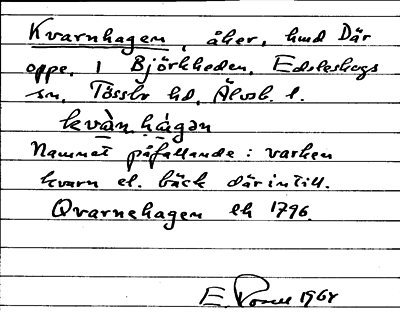 Kvarnhagen, åker, hmd Där
oppe, 1 Björkheden, Edsleskogs
sn, Tössbo hd, Älvsb. l.
kvàn hágən
Namnet påfallande: varken
kvarn el. bäck därintill.
Qvarnehagen lh 1796.
E. 1964